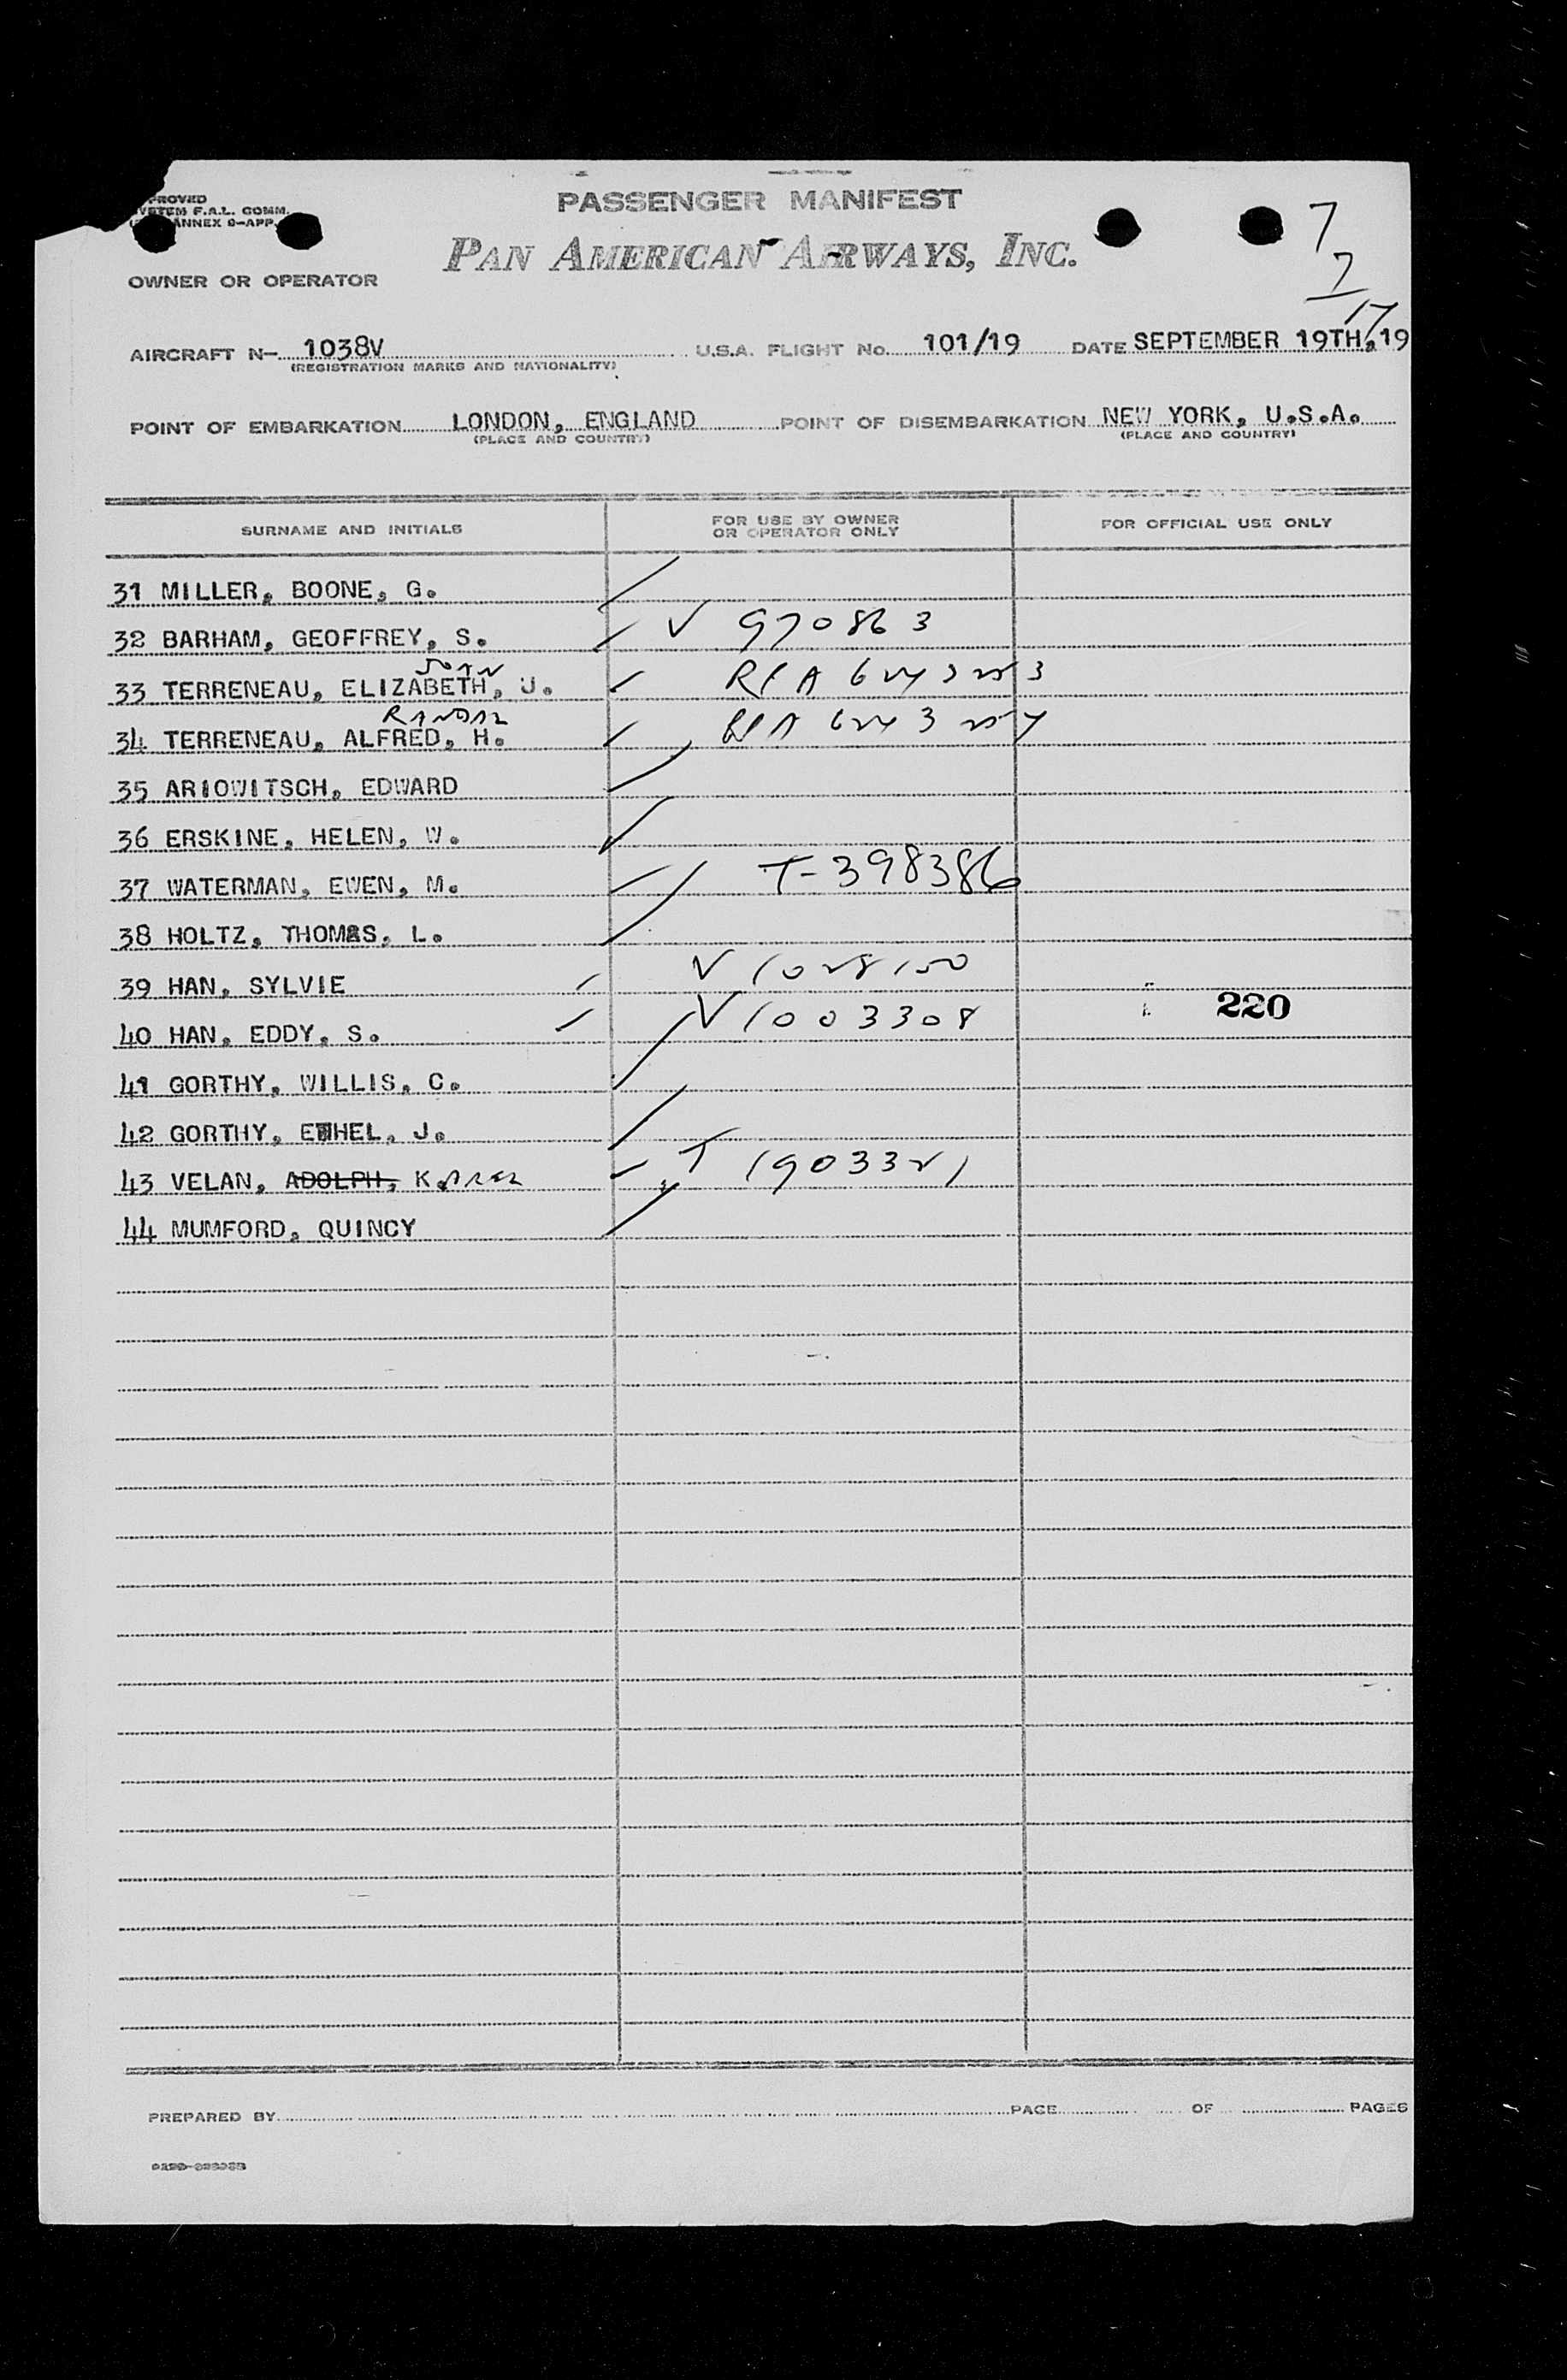 PROVED
F.A.L. COMM.
ANNEX 9-APP.
PASSENGER MANIFEST
PAN AMERICAN AIRWAYS, INC.
7
7
17
OWNER OR OPERATOR
AIRCRAFT N- 1038V U.S.A. FLIGHT No. 101/19 DATE SEPTEMBER 19TH, 19
(REGISTRATION MARKS AND NATIONALITY)
POINT OF EMBARKATION LONDON, ENGLAND POINT OF DISEMBARKATION NEW YORK, U.S.A.
(PLACE AND COUNTRY) (PLACE AND COUNTRY)
SURNAME AND INITIALS FOR USE BY OWNER OR OPERATOR ONLY FOR OFFICIAL USE ONLY
31 MILLER, BOONE, G.
32 BARHAM, GEOFFREY, S. V 970863
JOAN
33 TERRENEAU, ELIZABETH, J.
RANDAL
34 TERRENEAU, ALFRED, H.
35 ARIOWITSCH, EDWARD
36 ERSKINE, HELEN, W.
37 WATERMAN, EWEN, M. T-398386
38 HOLTZ, THOMAS, L.
39 HAN, SYLVIE V 1028150
40 HAN, EDDY, S. V 1003308 220
41 GORTHY, WILLIS, C.
42 GORTHY, ETHEL, J.
43 VELAN, ADOLPH, KAREL T 1903321
44 MUMFORD, QUINCY
PREPARED BY PAGE OF PAGES